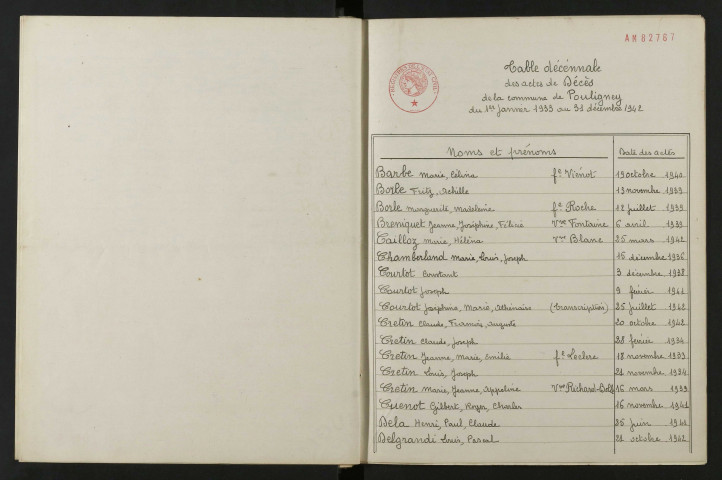 AM 02767
Table décénnale
des actes de Décès
de la commune de Pouligney
du 1er janvier 1933 au 31 décembre 1942
Noms et prénoms Date des actes
Barbe Marie, Célina fe Viénot 19 octobre 1940
Borle Fritz, Achille 13 novembre 1933
Borle Marguerite, Madeleine fe Roche 12 juillet 1939
Breniquet Jeanne, Joséphine, Vve Fontaine 6 avril 1939
Cailloz Marie, Héléna Vve Blanc 25 mars 1942
Chamberland Marie, Louis, Joseph 15 décembre 1936
Courlot Constant 3 décembre 1938
Courlot Joseph 9 février 1941
Courlot Joséphine, Marie, (transcription) 25 juillet 1942
Cretin Claude, François, Auguste 20 octobre 1942
Cretin Claude, Joseph 28 février 1934
Cretin Jeanne, Marie, Emilie fe Leclerc 18 novembre 1933
Cretin Louis, Joseph 21 novembre 1934
Cretin Marie, Jeanne, Appoline Vve Richard 16 mars 1939
Cuenot Gilbert, Roger, Charles 16 novembre 1941
Dela Henri, Paul, Claude 25 juin 1941
Delgrandi Louis, Pascal 21 octobre 1942